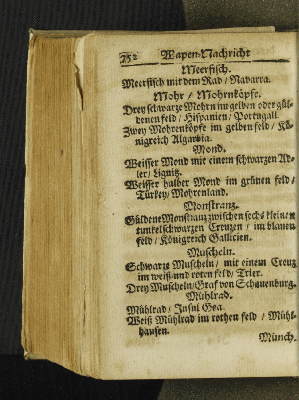 252 Wapen-Nachricht
Meerfisch.
Meerfisch mit dem Rad / Navarra.
Mohr / Mohrnköpfe.
Drey schwarze Mohrn im gelben oder gül-
denen feld / Hispanien / Portugall.
Zwey Mohrenköpfe im gelben feld / Kö-
nigreich Algarbia.
Mond.
Weisser Mond mit einem schwarzen Ad-
ler / Lignitz.
Weisser halber Mond im grünen feld /
Türkey / Mohrenland.
Monstranz.
Güldene Monstranz zwischen sechs kleinen
tunkelschwarzen Creuzen / im blauen
feld / Königreich Gallicien.
Muscheln.
Schwarze Muscheln / mit einem Creuz
im weiß und roten feld / Trier.
Drey Muscheln / Graf von Schauenburg.
Mühlrad.
Mühlrad / Insul Goa
Weiß Mühlrad im rothen feld / Mühl-
hausen.
Münch.